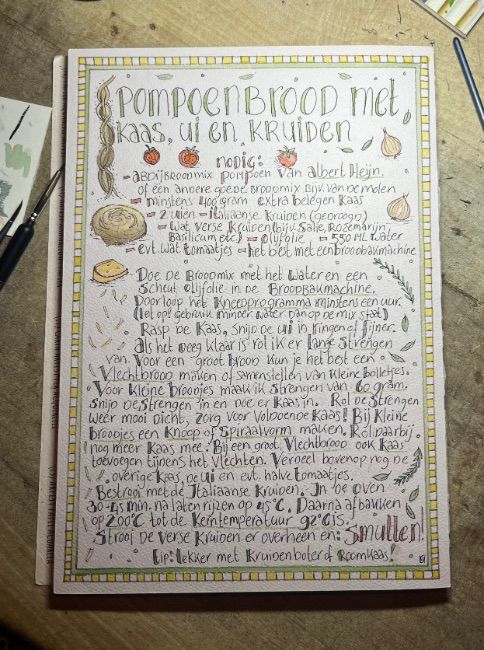 Pompoenbrood met
kaas, ui en kruiden
nodig:
- Abdijbroodmix pompoen van Albert Heijn.
of een andere goede broodmix bijv. van de molen
- minstens 400 gram extra belegen kaas
- 2 uien - Italiaanse kruiden (gedroogd)
- wat verse kruiden (bijv. salie, rozemarijn,
Basilicum etc.) - olijfolie - 550 ml water
- evt. wat tomaatjes - het best met een broodbakmachine
Doe de broodmix met het water en een
scheut olijfolie in de Broodbakmachine.
Doorloop het kneedprogramma minstens een uur.
(let op! gebruik minder water dan op de mix staat)
Rasp de kaas, snijd de ui in ringen of fijner.
Als het deeg klaar is rol ik er lange strengen
van. Voor een groot brood kun je het best een
Vlechtbrood maken of samenstellen van kleine bolletjes.
Voor kleine broodjes maak ik strengen van 60 gram.
Snijd de strengen in en doe er kaas in. Rol de strengen
weer mooi dicht, zorg voor voldoende kaas! Bij kleine
broodjes een knoop of spiraalvorm maken. Rol daarbij
nog meer kaas mee. Bij een groot Vlechtbrood ook kaas
toevoegen tijdens het vlechten. Verdeel bovenop nog de
overige kaas, de ui en evt. halve tomaatjes.
Bestrooi met de Italiaanse kruiden. In de oven
30-45 min. na laten rijzen op 45°C. Daarna afbakken
op 200°C tot de kerntemperatuur 92°C is.
Strooi de verse kruiden er overheen en: Smullen!
Tip: lekker met kruidenboter of roomkaas!